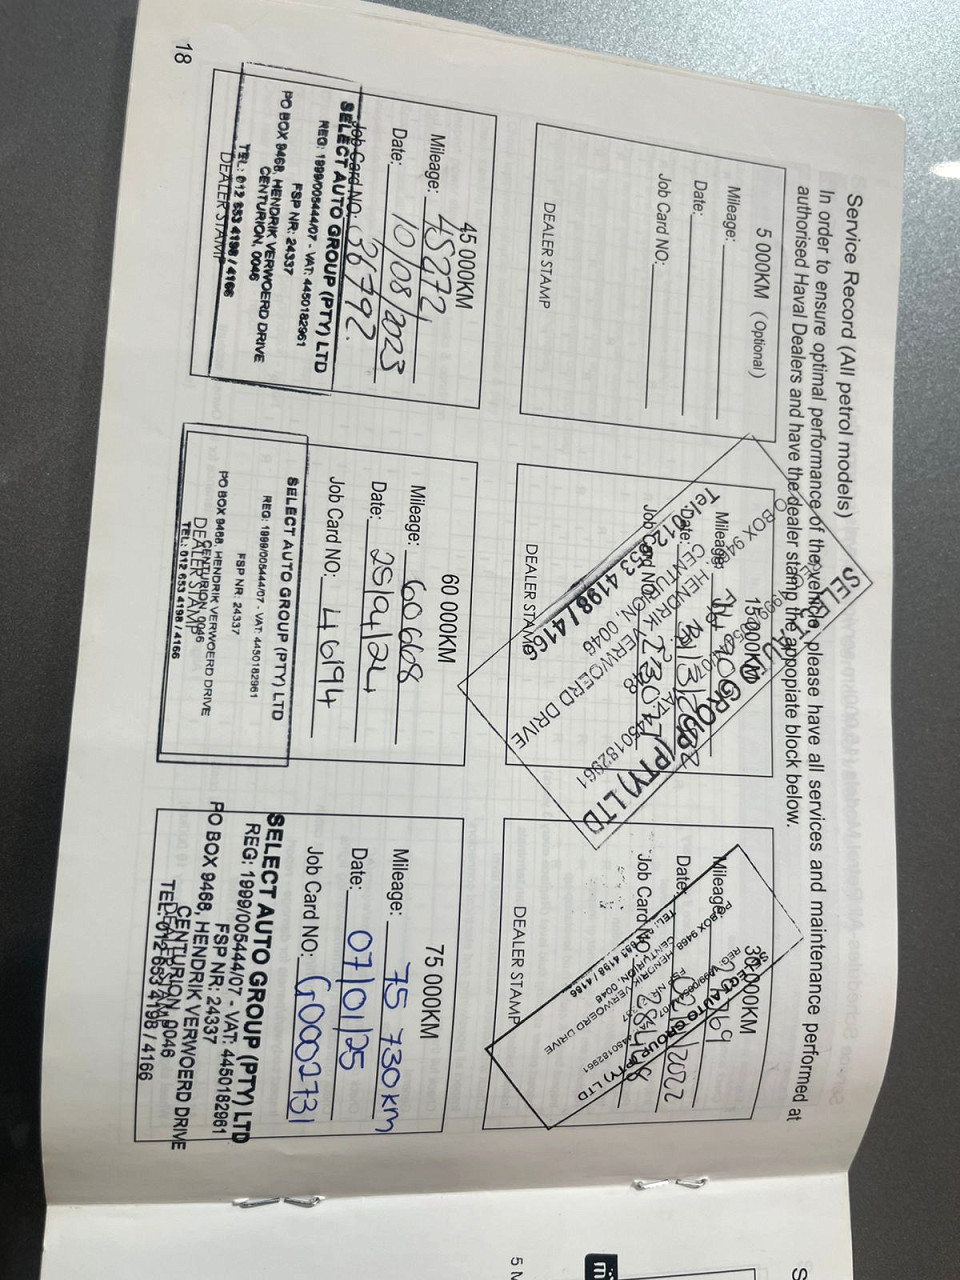 Service Record (All petrol models)
In order to ensure optimal performance of the vehicle, please have all services and maintenance performed at
authorised Haval Dealers and have the dealer stamp the appopiate block below.
5 000KM (Optional)
Mileage:
Date:
Job Card NO:
DEALER STAMP
15 000KM
Mileage:
Date:
Job Card NO: 223077
DEALER STAMP
SELECT AUTO GROUP (PTY) LTD
VAT: 4450182961
PO BOX 9468, HENDRIK VERWOERD DRIVE
CENTURION, 0046
Tel: 012 653 4198 / 4166
30 000KM
Mileage:
Date: 2022
Job Card NO:
DEALER STAMP
SELECT AUTO GROUP (PTY) LTD
PO BOX 9468 HENDRIK VERWOERD DRIVE
CENTURION, 0046
45 000KM
Mileage: 45272
Date: 10/08/2023
Job Card NO: 36792.
SELECT AUTO GROUP (PTY) LTD
REG: 1999/005444/07 - VAT: 4450182961
FSP NR: 24337
PO BOX 9468, HENDRIK VERWOERD DRIVE
CENTURION, 0046
TEL: 012 653 4198 / 4166
DEALER STAMP
60 000KM
Mileage: 60668
Date:
Job Card NO: 46194
SELECT AUTO GROUP (PTY) LTD
REG: 1999/005444/07 - VAT: 4450182961
FSP NR: 24337
PO BOX 9468, HENDRIK VERWOERD DRIVE
CENTURION, 0046
DEALER STAMP
TEL: 012 653 4198 / 4166
75 000KM
Mileage: 75 730km
Date: 07/01/25
Job Card NO: G0002731
SELECT AUTO GROUP (PTY) LTD
REG: 1999/005444/07 - VAT: 4450182961
FSP NR: 24337
PO BOX 9468, HENDRIK VERWOERD DRIVE
CENTURION, 0046
DEALER STAMP
TEL: 012 653 4198 / 4166
18